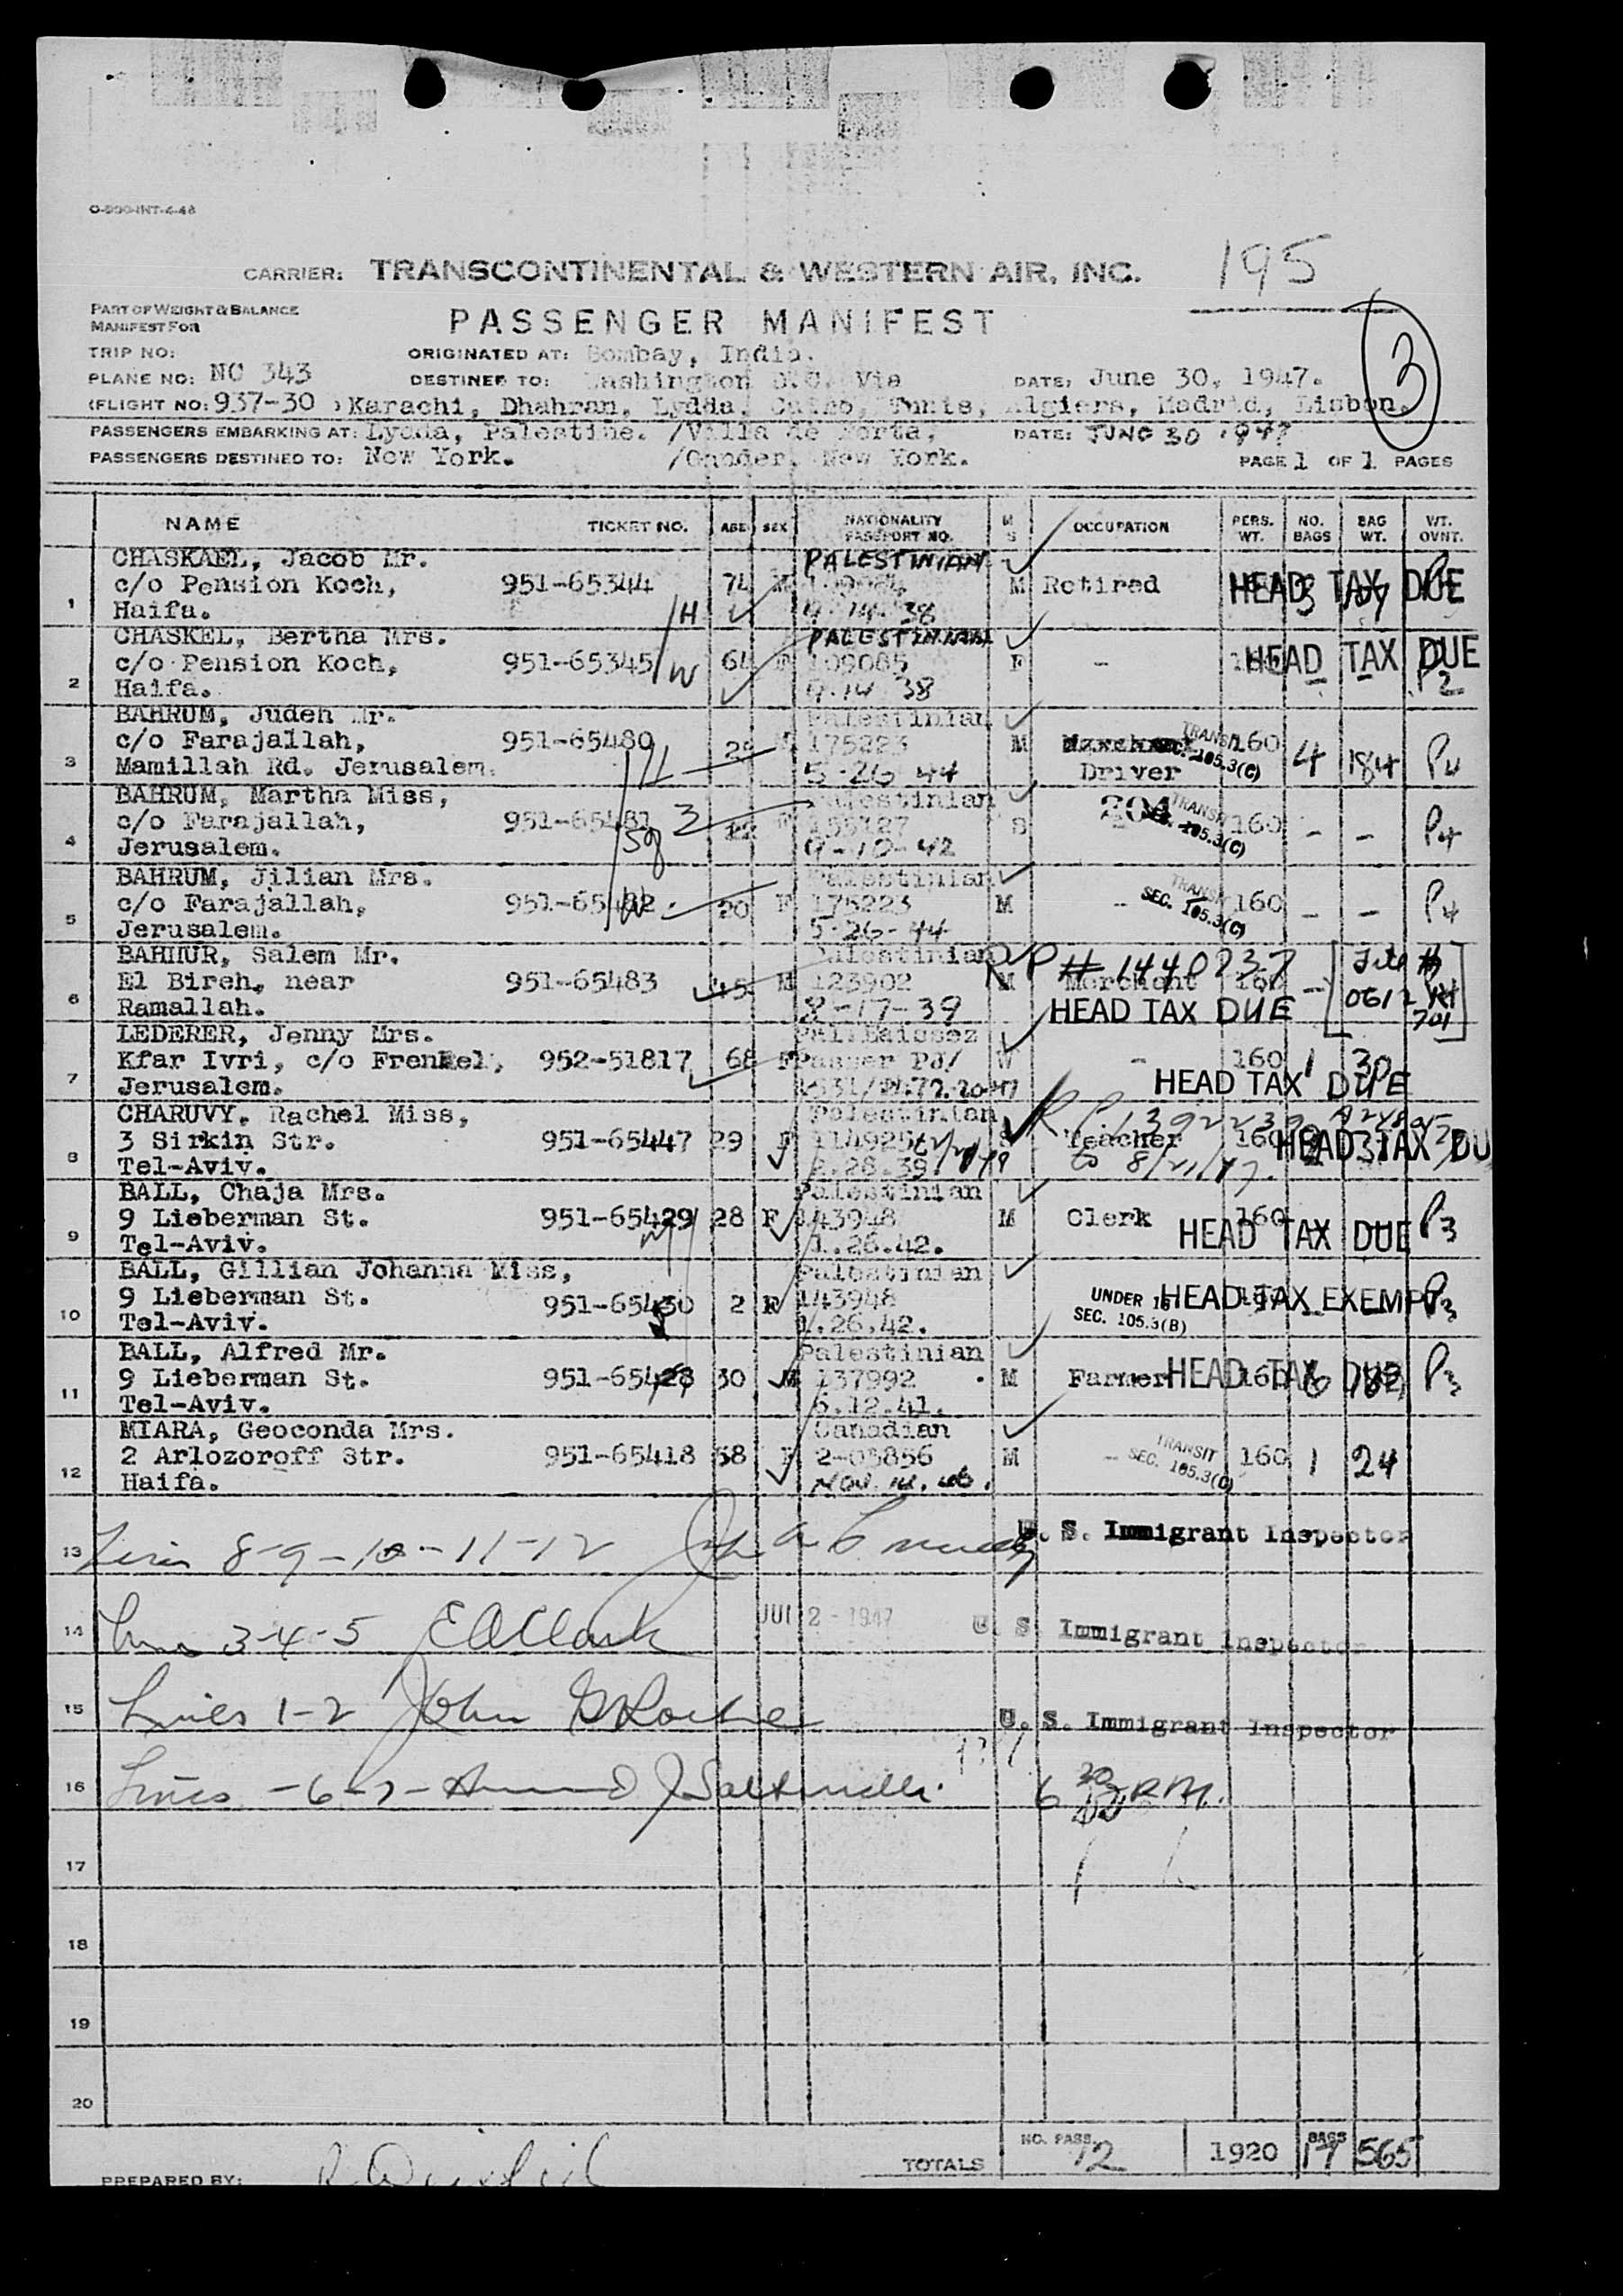 O-200-INT-4-46
195
CARRIER: TRANSCONTINENTAL & WESTERN AIR, INC.
3
PART OF WEIGHT & BALANCE
MANIFEST FOR
PASSENGER MANIFEST
TRIP NO: ORIGINATED AT: Bombay, India.
PLANE NO: NC 343 DESTINED TO: Washington D.C. Via DATE: June 30, 1947.
(FLIGHT NO: 937-30 ) Karachi, Dhahran, Lydda, Cairo, Tunis, Algiers, Madrid, Lisbon,
PASSENGERS EMBARKING AT: Lydda, Palestine. /Villa de Porta, DATE: JUNE 30 1947
PASSENGERS DESTINED TO: New York. /Gander, New York. PAGE 1 OF 1 PAGES
NAME TICKET NO. AGE SEX NATIONALITY PASSPORT NO. M S OCCUPATION PERS. WT. NO. BAGS BAG WT. WT. OVNT.
CHASKAEL, Jacob Mr. PALESTINIAN
c/o Pension Koch, 951-65344 74 M M Retired HEAD TAX DUE
1 Haifa. H 9-14-38
CHASKEL, Bertha Mrs. PALESTINIAN
c/o Pension Koch, 951-65345 W 64 F 109085 F - HEAD TAX DUE
2 Haifa. 9-14-38 P2
BAHRUM, Judeh Mr. Palestinian
c/o Farajallah, 951-65480 M 175223 M TRANSIT SEC. 105.3(C) 160 4 184 P4
3 Mamillah Rd. Jerusalem. 5-26-44 Driver
BAHRUM, Martha Miss, Palestinian
c/o Farajallah, 951-65481 3 F S 204 TRANSIT SEC. 105.3(C) 160 - - P4
4 Jerusalem. sg 9-10-42
BAHRUM, Jilian Mrs. Palestinian
c/o Farajallah, 951-65482 W 20 F 175223 M - TRANSIT SEC. 105.3(C) 160 - - P4
5 Jerusalem. 5-26-44
BAHHUR, Salem Mr. Palestinian RP # 1440237 File #
El Bireh, near 951-65483 45 M 123902 M Merchant 160 - 0612
6 Ramallah. 8-17-39 HEAD TAX DUE 701
LEDERER, Jenny Mrs. Pal.Laissez
Kfar Ivri, c/o Frenkel, 952-51817 68 F Passer PJ/ W - 160 1 30
7 Jerusalem. HEAD TAX DUE
CHARUVY, Rachel Miss, Palestinian RP 1392239
3 Sirkin Str. 951-65447 29 F S Teacher 160 HEAD TAX DU
8 Tel-Aviv. 2.28.39 to 8/21/47.
BALL, Chaja Mrs. Palestinian
9 Lieberman St. 951-65429 28 F 143948 M Clerk 160 HEAD TAX DUE P3
9 Tel-Aviv. 1.26.42.
BALL, Gillian Johanna Miss, Palestinian
9 Lieberman St. 951-65430 2 F 143948 UNDER 16 HEAD TAX EXEMPT P3
10 Tel-Aviv. 1.26.42. SEC. 105.3(B)
BALL, Alfred Mr. Palestinian
9 Lieberman St. 951-65428 30 M 137992 M Farmer 160 HEAD TAX DUE P3
11 Tel-Aviv. 5.12.41.
MIARA, Geoconda Mrs. Canadian
2 Arlozoroff Str. 951-65418 58 F 2-03856 M - TRANSIT SEC. 105.3(C) 160 1 24
12 Haifa. NOV. 14. 46.
13 8-9-10-11-12 U. S. Immigrant Inspector
14 3-4-5 E A Clark JUL 2 - 1947 U. S. Immigrant Inspector
15 Lines 1-2 John U. S. Immigrant Inspector
16 Lines -6-7- 6 30 P.M.
17
18
19
20
PREPARED BY: TOTALS NO. PASS. 12 1920 BAGS 17 565